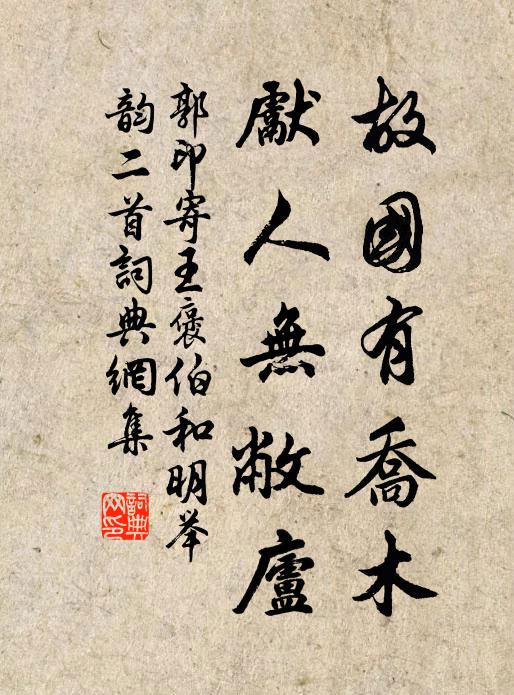 故國有喬木
獻人無敝廬
郭印寄王褒伯和明举
韵二首詞典網集
詞典网印